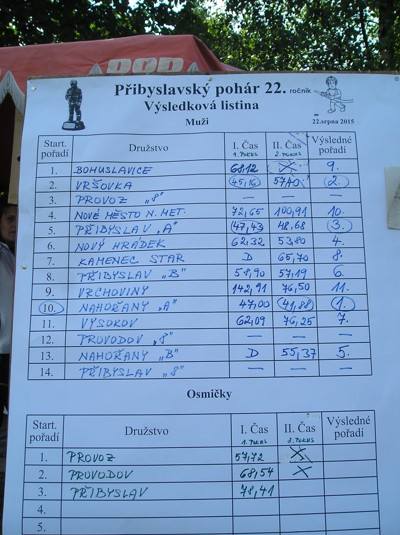 Přibyslavský pohár 22. ročník
Výsledková listina
Muži
22.srpna 2015
Start. pořadí Družstvo I. Čas 1. POKUS II. Čas 2. POKUS Výsledné pořadí
1. BOHUSLAVICE 68,12 X 9.
2. VRŠOVKA 45,16 57,40 2.
3. PROVOZ „8" — — —
4. NOVÉ MĚSTO N. MET. 72,65 100,91 10.
5. PŘIBYSLAV „A" 47,43 48,68 3.
6. NOVÝ HRÁDEK 62,32 53,80 4.
7. KAMENEC STAR D 65,70 8.
8. PŘIBYSLAV „B" 58,90 57,19 6.
9. VRCHOVINY 142,91 76,50 11.
10. NAHOŘANY „A" 47,00 41,88 1.
11. VYSOKOV 62,09 76,25 7.
12. PROVODOV „8" — — —
13. NAHOŘANY „B" D 55,37 5.
14. PŘIBYSLAV „8" — — —
Osmičky
Start. pořadí Družstvo I. Čas 1. POKUS II. Čas 2. POKUS Výsledné pořadí
1. PROVOZ 57,72 X
2. PROVODOV 68,54 X
3. PŘIBYSLAV 78,41
4.
5.